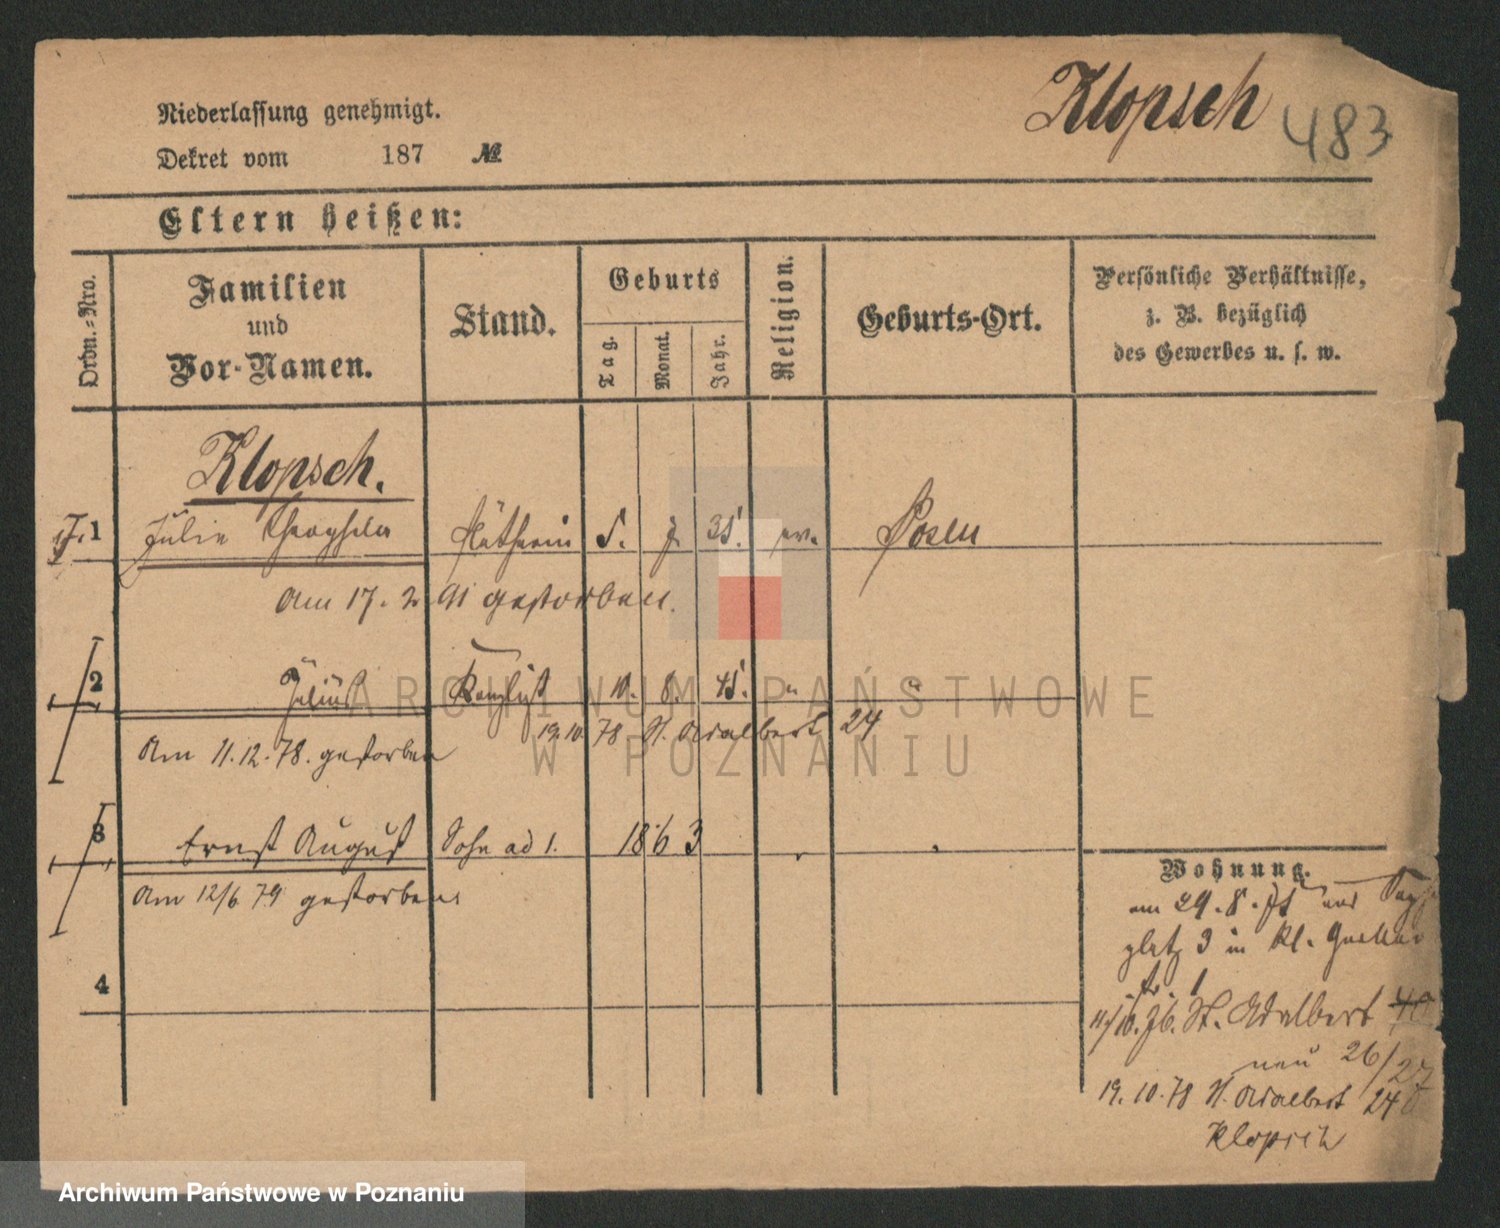 Klopsch 483
Niederlassung genehmigt.
Dekret vom 187 №
Eltern heißen:
Ordn.-Nro.
Familien
und
Vor-Namen.
Stand.
Geburts
Tag.
Monat.
Jahr.
Religion.
Geburts-Ort.
Persönliche Verhältnisse,
z. B. bezüglich
des Gewerbes u. s. w.
Klopsch.
1 Julie 5. 35. ev. Posen
Am 17. 2 91 gestorben.
2 Julius Kanzlist 10. 8. 45. " "
19.10 78 St. Adalbert 24
Am 11.12.78. gestorben
3 Ernst August Sohn ad 1. 1863
Am 12/6 79 gestorben
4
Wohnung.
am 29. 8.
platz 3 in kl.
str. 1
11/10. 76. St. Adalbert 40
neu 26/27
19. 10. 78 St. Adalbert 24
Klopsch
ARCHIWUM PAŃSTWOWE
W POZNANIU
Archiwum Państwowe w Poznaniu